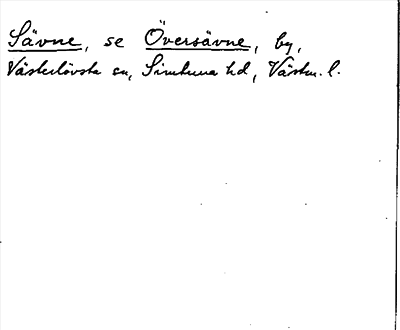 Sävne, se Översävne, by,
Västerlövsta sn, Simtuna hd, Västm. l.